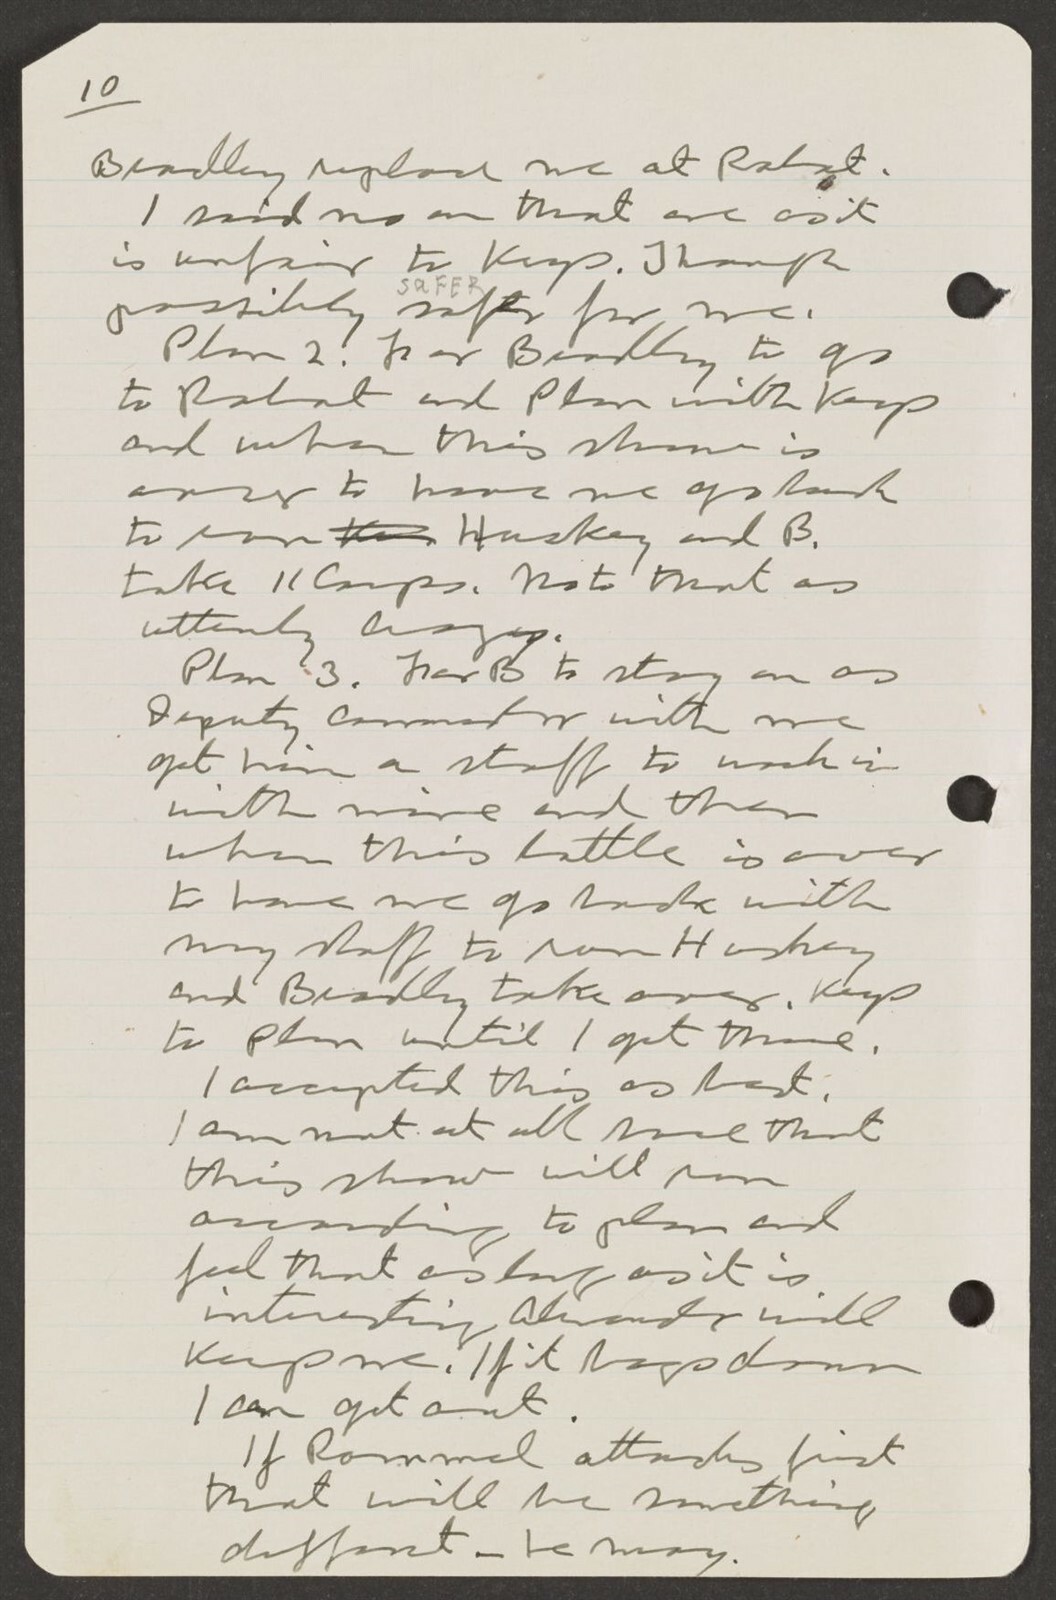 10
Bradley replace me at Rabat.
I said no on that one as it
is unfair to Keys. Though
SaFER
possibly safer for me.
Plan 2. For Bradley to go
to Rabat and Plan with Keys
and when this show is
over to have me go back
to run Huskey and B.
take II Corps. No to that as
utterly crazy.
Plan 3. For B to stay on as
Deputy Commander with me
get him a staff to work in
with mine and then
when this battle is over
to have me go back with
my staff to run Huskey
and Bradley take over. Keys
to plan until I get there.
I accepted this as best.
I am not at all sure that
this show will run
according to plan and
feel that as long as it is
interesting Alexander will
Keep me. If it bogs down
I can get out.
If Rommel attacks first
that will be something
different – he may.